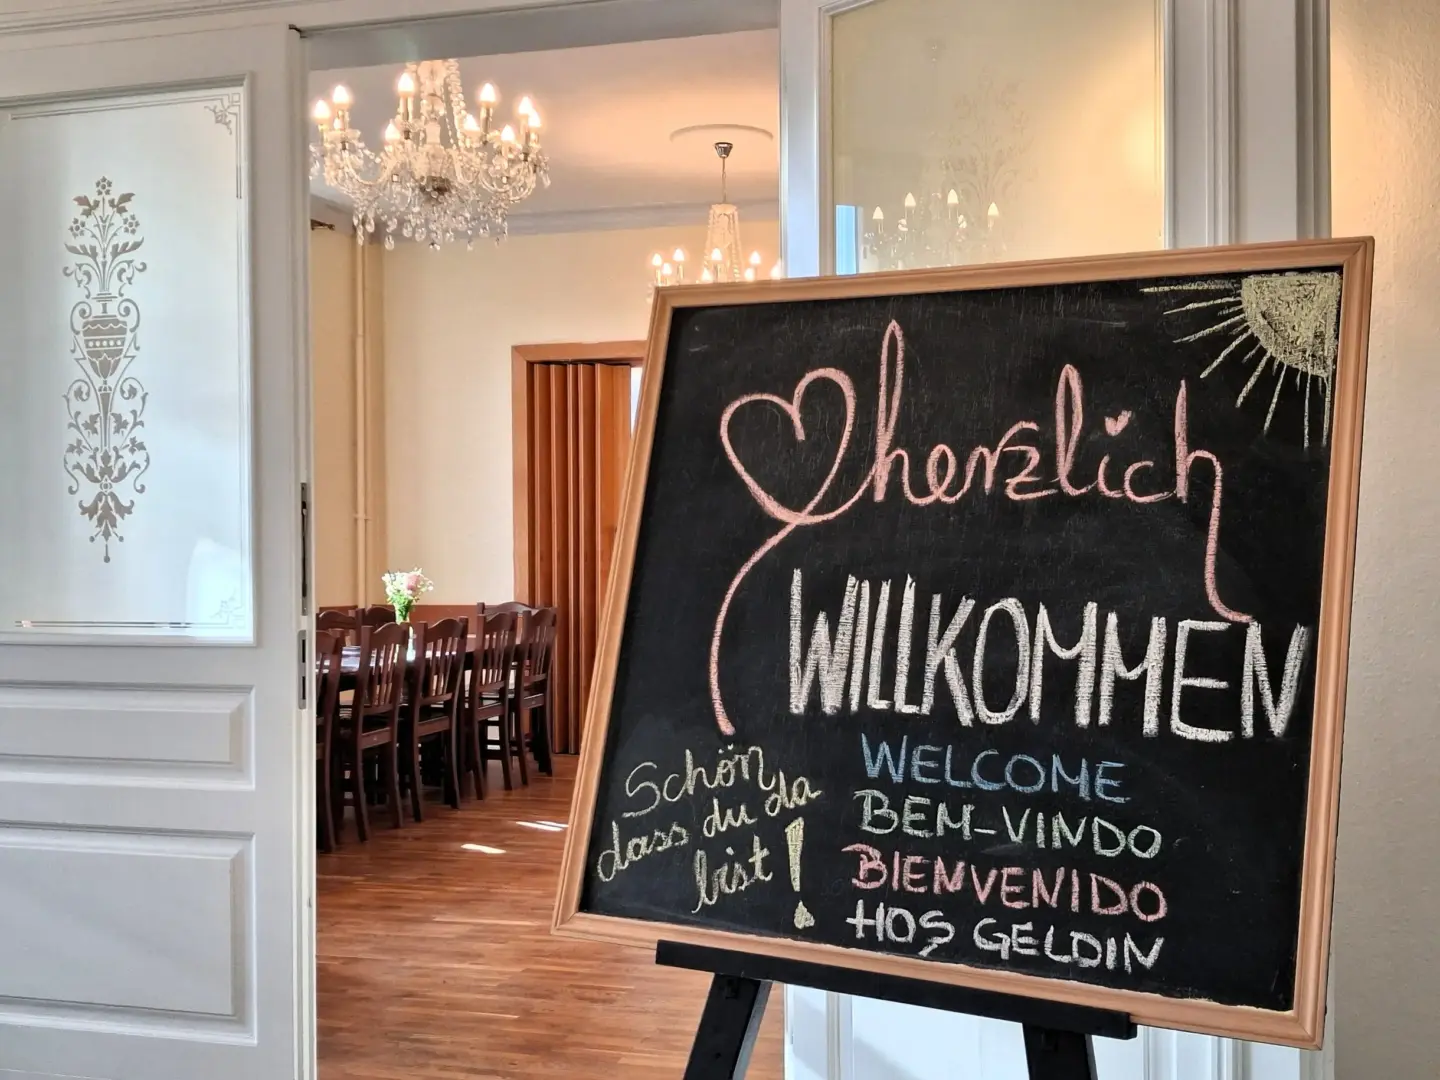 herzlich
WILLKOMMEN
Schön
dass du da
bist!
WELCOME
BEM-VINDO
BIENVENIDO
HOŞ GELDIN